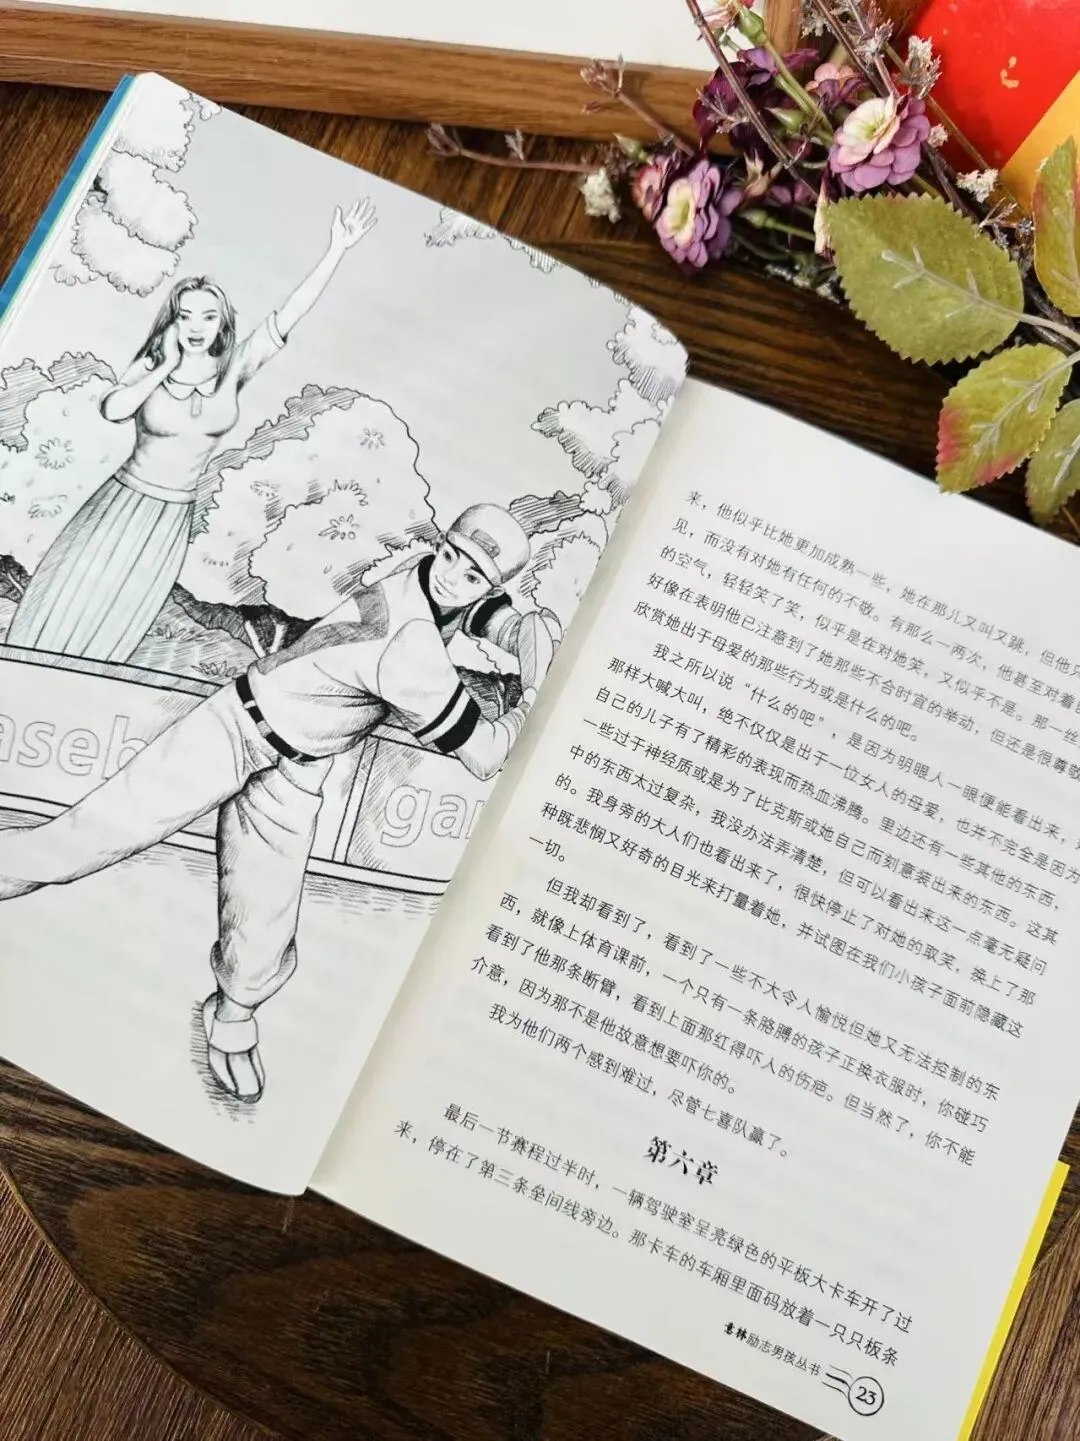 aseb
gar
来，他似乎比她更加成熟一些，她在那儿又叫又跳，但他只
见，而没有对她有任何的不敬。有那么一两次，他甚至对着
的空气，轻轻笑了笑，似乎是在对她笑，又似乎不是。那一丝
好像在表明他已注意到了她那些不合时宜的举动，但还是很尊敬
欣赏她出于母爱的那些行为或是什么的吧。
我之所以说“什么的吧”，是因为明眼人一眼便能看出来，
那样大喊大叫，绝不仅仅是出于一位女人的母爱，也并不完全是因为
自己的儿子有了精彩的表现而热血沸腾。里边还有一些其他的东西，
一些过于神经质或是为了比克斯或她自己而刻意装出来的东西。这其
中的东西太过复杂，我没办法弄清楚，但可以看出来这一点毫无疑问
的。我身旁的大人们也看出来了，很快停止了对她的取笑，换上了那
种既悲悯又好奇的目光来打量着她，并试图在我们小孩子面前隐藏这
一切。
但我却看到了，看到了一些不大令人愉悦但她又无法控制的东
西，就像上体育课前，一个只有一条胳膊的孩子正换衣服时，你碰巧
看到了他那条断臂，看到上面那红得吓人的伤疤。但当然了，你不能
介意，因为那不是他故意想要吓你的。
我为他们两个感到难过，尽管七喜队赢了。
第六章
最后一节赛程过半时，一辆驾驶室呈亮绿色的平板大卡车开了过
来，停在了第三条垒间线旁边。那卡车的车厢里面码放着一只只板条
意林励志男孩丛书
23